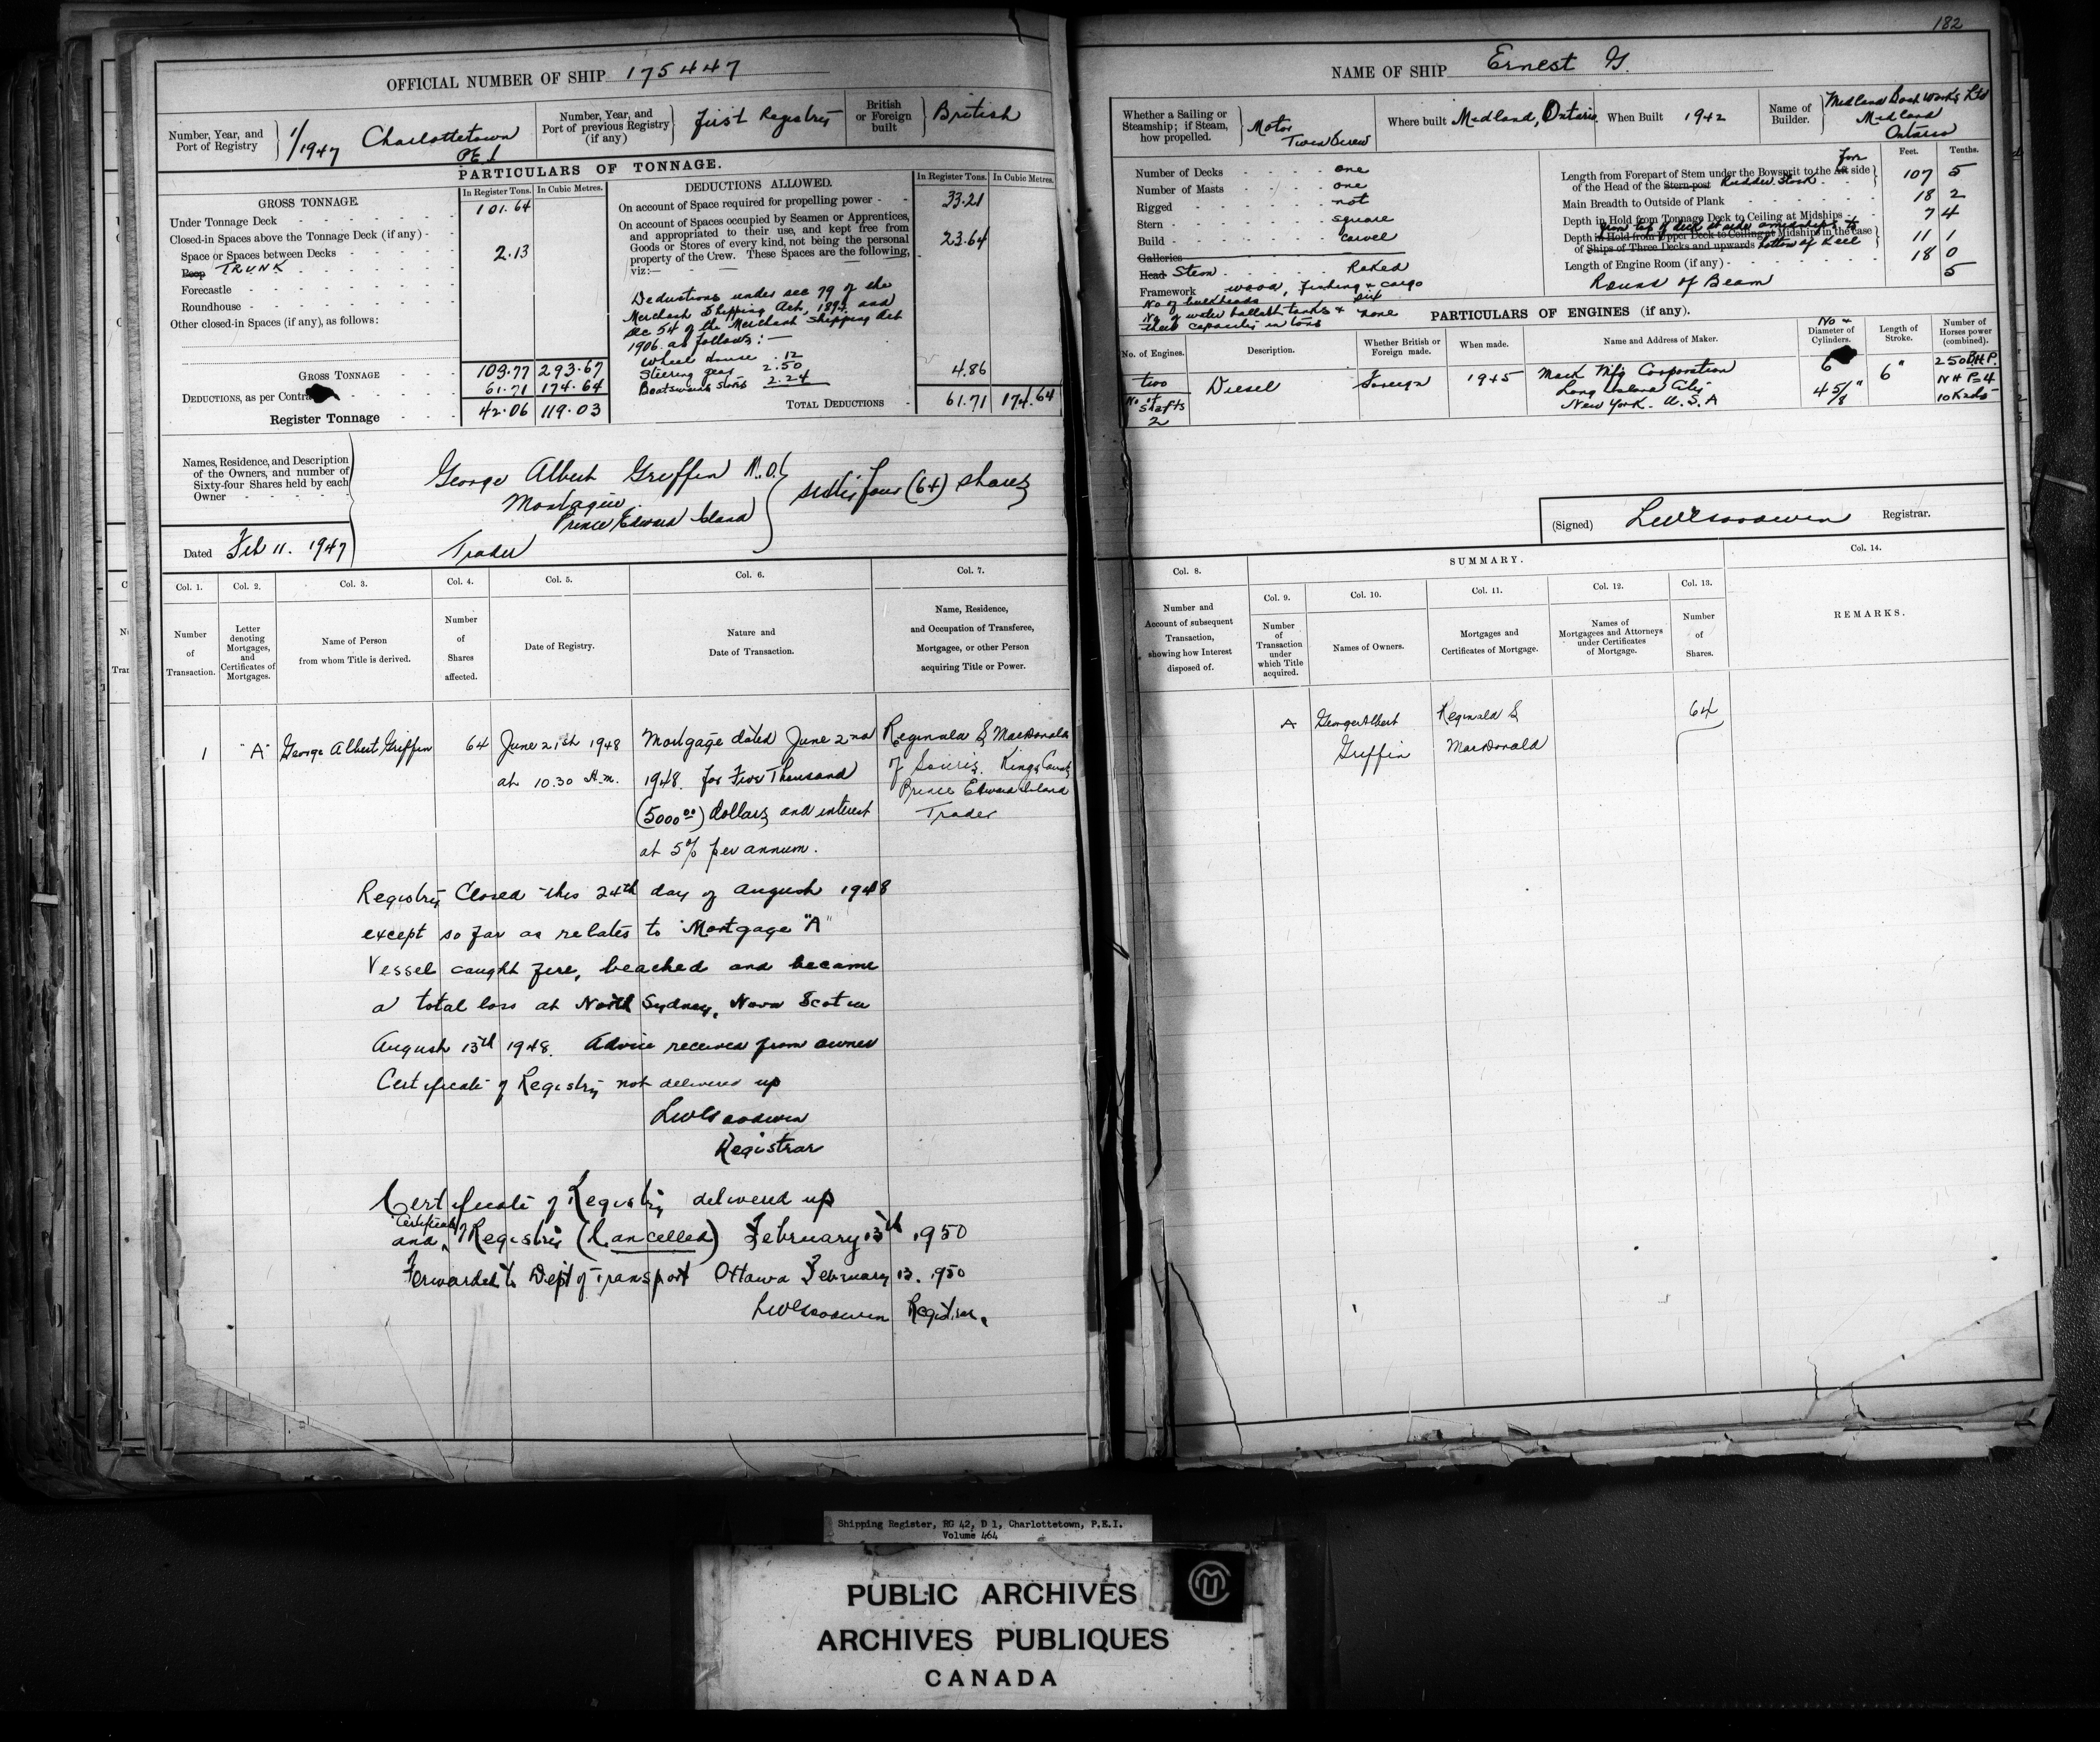 182
OFFICIAL NUMBER OF SHIP 175447
Number, Year, and Port of Registry
1/1947 Charlottetown PEI
Number, Year, and Port of previous Registry (if any)
First Registry
British or Foreign built
British
PARTICULARS OF TONNAGE.
GROSS TONNAGE
In Register Tons.
In Cubic Metres.
Under Tonnage Deck 101.64
Closed-in Spaces above the Tonnage Deck (if any)
Space or Spaces between Decks 2.13
Poop TRUNK
Forecastle
Roundhouse
Other closed-in Spaces (if any), as follows:
GROSS TONNAGE 103.77 293.67
DEDUCTIONS, as per Contra 61.71 174.64
Register Tonnage 42.06 119.03
DEDUCTIONS ALLOWED.
In Register Tons.
In Cubic Metres.
On account of Space required for propelling power 33.21
On account of Spaces occupied by Seamen or Apprentices,
and appropriated to their use, and kept free from
Goods or Stores of every kind, not being the personal 23.64
property of the Crew. These Spaces are the following,
viz:—
Deductions under sec 79 of the
Merchant Shipping Act, 1894 and
Sec 54 of the Merchant Shipping Act
1906 as follows:—
Wheel House .12
Steering gear 2.50 4.86
Boatswains Stores 2.24
TOTAL DEDUCTIONS 61.71 174.64
Names, Residence, and Description
of the Owners, and number of
Sixty-four Shares held by each
Owner
George Albert Griffin
Montague
Prince Edward Island
Trader
sixty four (64) shares
Dated Feb 11. 1947
Col. 1. Col. 2. Col. 3. Col. 4. Col. 5. Col. 6. Col. 7.
Number of Transaction.
Letter denoting Mortgages, and Certificates of Mortgages.
Name of Person from whom Title is derived.
Number of Shares affected.
Date of Registry.
Nature and Date of Transaction.
Name, Residence, and Occupation of Transferee, Mortgagee, or other Person acquiring Title or Power.
1 "A" George Albert Griffin 64 June 21st 1948 Mortgage dated June 2nd Reginald S MacDonald
at 10.30 A.m. 1948. for Five Thousand of Souris. Kings County
Prince Edward Island
(5000 00) dollars and interest Trader
at 5% per annum.
Registry Closed this 24th day of August 1948
except so far as relates to Mortgage "A"
Vessel caught fire, beached and became
a total loss at North Sydney, Nova Scotia
August 13th 1948. Advice received from owner
Certificate of Registry not delivered up
LW Goodwin
Registrar
Certificate of Registry delivered up
and Certificate of Registry (Cancelled) February 13th 1950
Forwarded to Dept of Transport Ottawa February 13. 1950
LW Goodwin Registrar.
NAME OF SHIP Ernest G.
Whether a Sailing or Steamship; if Steam, how propelled.
Motor
Twin Screw
Where built Midland, Ontario
When Built 1942
Name of Builder.
Midland Boat Works Ltd
Midland
Ontario
Number of Decks one
Number of Masts one
Rigged not
Stern square
Build carvel
Galleries
Head Stem Raked
Framework wood, fishing & cargo
No of bulkheads six
No of water ballast tanks & none
their capacity in tons
Feet. Tenths.
Length from Forepart of Stem under the Bowsprit to the Aft fore side
of the Head of the Stern-post Rudder Stock 107 5
Main Breadth to Outside of Plank 18 2
Depth in Hold from Tonnage Deck to Ceiling at Midships 7 4
from top of deck at side amidships to
Depth in Hold from Upper Deck to Ceiling at Midships in the case
of Ships of Three Decks and upwards bottom of keel 11 1
Length of Engine Room (if any) 18 0
Round of Beam 5
PARTICULARS OF ENGINES (if any).
No. of Engines.
Description.
Whether British or Foreign made.
When made.
Name and Address of Maker.
No & Diameter of Cylinders.
Length of Stroke.
Number of Horses power (combined).
two
No of shafts
2
Diesel
Foreign
1945
Mack Mfg Corporation
Long Island City
New York. U.S.A
6
4 5/8"
6"
250 BHP.
10 Knots
(Signed) LW Goodwin Registrar.
Col. 8.
SUMMARY.
Col. 14.
Col. 9. Col. 10. Col. 11. Col. 12. Col. 13.
Number and Account of subsequent Transaction, showing how Interest disposed of.
Number of Transaction under which Title acquired.
Names of Owners.
Mortgages and Certificates of Mortgage.
Names of Mortgagees and Attorneys under Certificates of Mortgage.
Number of Shares.
REMARKS.
A George Albert Reginald S 64
Griffin MacDonald
Shipping Register, RG 42, D 1, Charlottetown, P.E.I.
Volume 464
PUBLIC ARCHIVES
ARCHIVES PUBLIQUES
CANADA